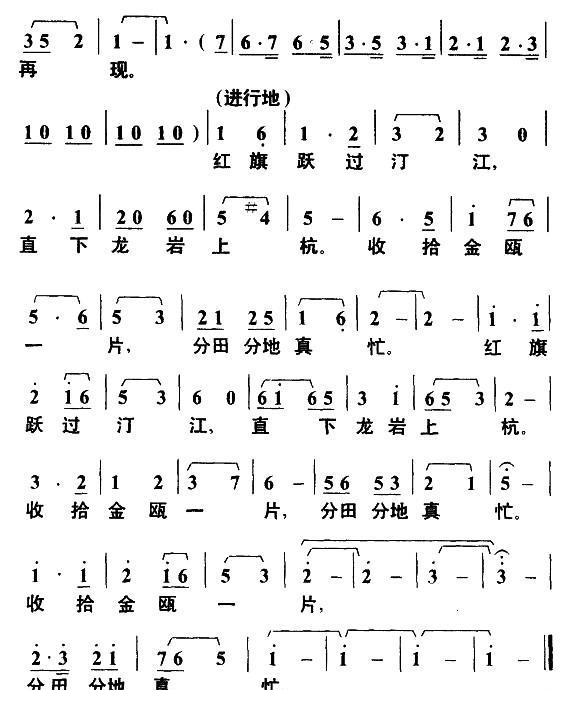 3 5 2 | 1 – | 1 · ( 7 | 6 · 7 6 · 5 | 3 · 5 3 · 1 | 2 · 1 2 · 3 |
再 现。
(进行地)
1 0 1 0 | 1 0 1 0 ) | 1 6 | 1 · 2 | 3 2 | 3 0 |
红 旗 跃 过 汀 江,
2 · 1 | 2 0 6 0 | 5 #4 | 5 – | 6 · 5 | 1 7 6 |
直 下 龙 岩 上 杭。 收 拾 金 瓯
5 · 6 | 5 3 | 2 1 2 5 | 1 6 | 2 – | 2 – | 1 · 1 |
一 片, 分田 分地 真 忙。 红 旗
2 1 6 | 5 3 | 6 0 | 6 1 6 5 | 3 1 | 6 5 3 | 2 – |
跃 过 汀 江, 直 下 龙 岩 上 杭。
3 · 2 | 1 2 | 3 7 | 6 – | 5 6 5 3 | 2 1 | 5 – |
收 拾 金 瓯 一 片, 分田 分地 真 忙。
1 · 1 | 2 1 6 | 5 3 | 2 – | 2 – | 3 – | 3 – |
收 拾 金 瓯 一 片,
2 · 3 2 1 | 7 6 5 | 1 – | 1 – | 1 – | 1 – ‖
分 田 分地 真 忙